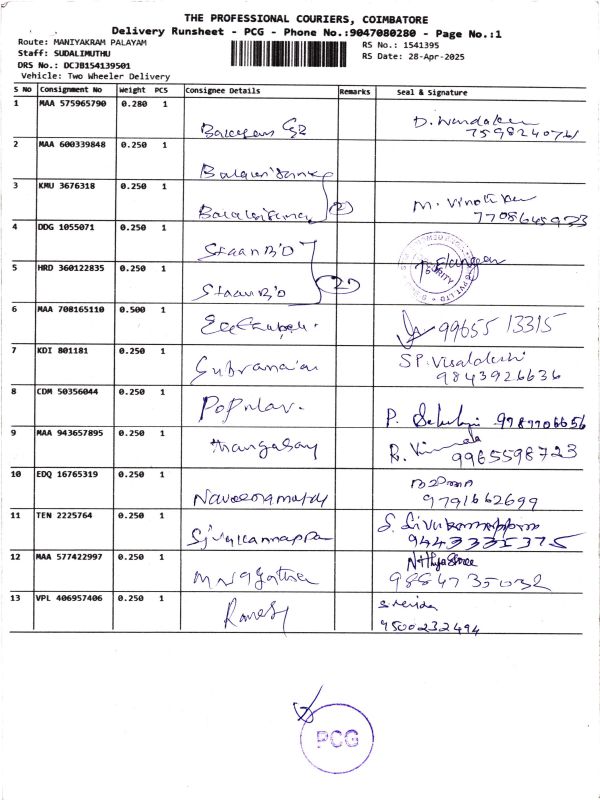 THE PROFESSIONAL COURIERS, COIMBATORE
Delivery Runsheet - PCG - Phone No.:9047080280 - Page No.:1
Route: MANIYAKRAM PALAYAM
RS No.: 1541395
Staff: SUDALIMUTHU
RS Date: 28-Apr-2025
DRS No.: DCJB154139501
Vehicle: Two Wheeler Delivery
S No Consignment No Weight PCS Consignee Details Remarks Seal & Signature
1 MAA 575965790 0.280 1
7598240761
2 MAA 600339848 0.250 1
3 KMU 3676318 0.250 1
2
M. Vinoth
7708645973
4 DDG 1055071 0.250 1
StaanBio
5 HRD 360122835 0.250 1
StaanBio
2
SECURITY
6 MAA 708165110 0.500 1
99655 13315
7 KDI 801181 0.250 1
Subramaian
SP. Visalakshi
9843926636
8 CDM 50356044 0.250 1
Popular.
P. 9787706656
9 MAA 943657895 0.250 1
Thangasamy
R. Vimala
9965598723
10 EDQ 16765319 0.250 1
9791662699
11 TEN 2225764 0.250 1
Sivakannappa
9443335375
12 MAA 577422997 0.250 1
Nithya Stores
9884735032
13 VPL 406957406 0.250 1
Ramesh
9500232494
PCG